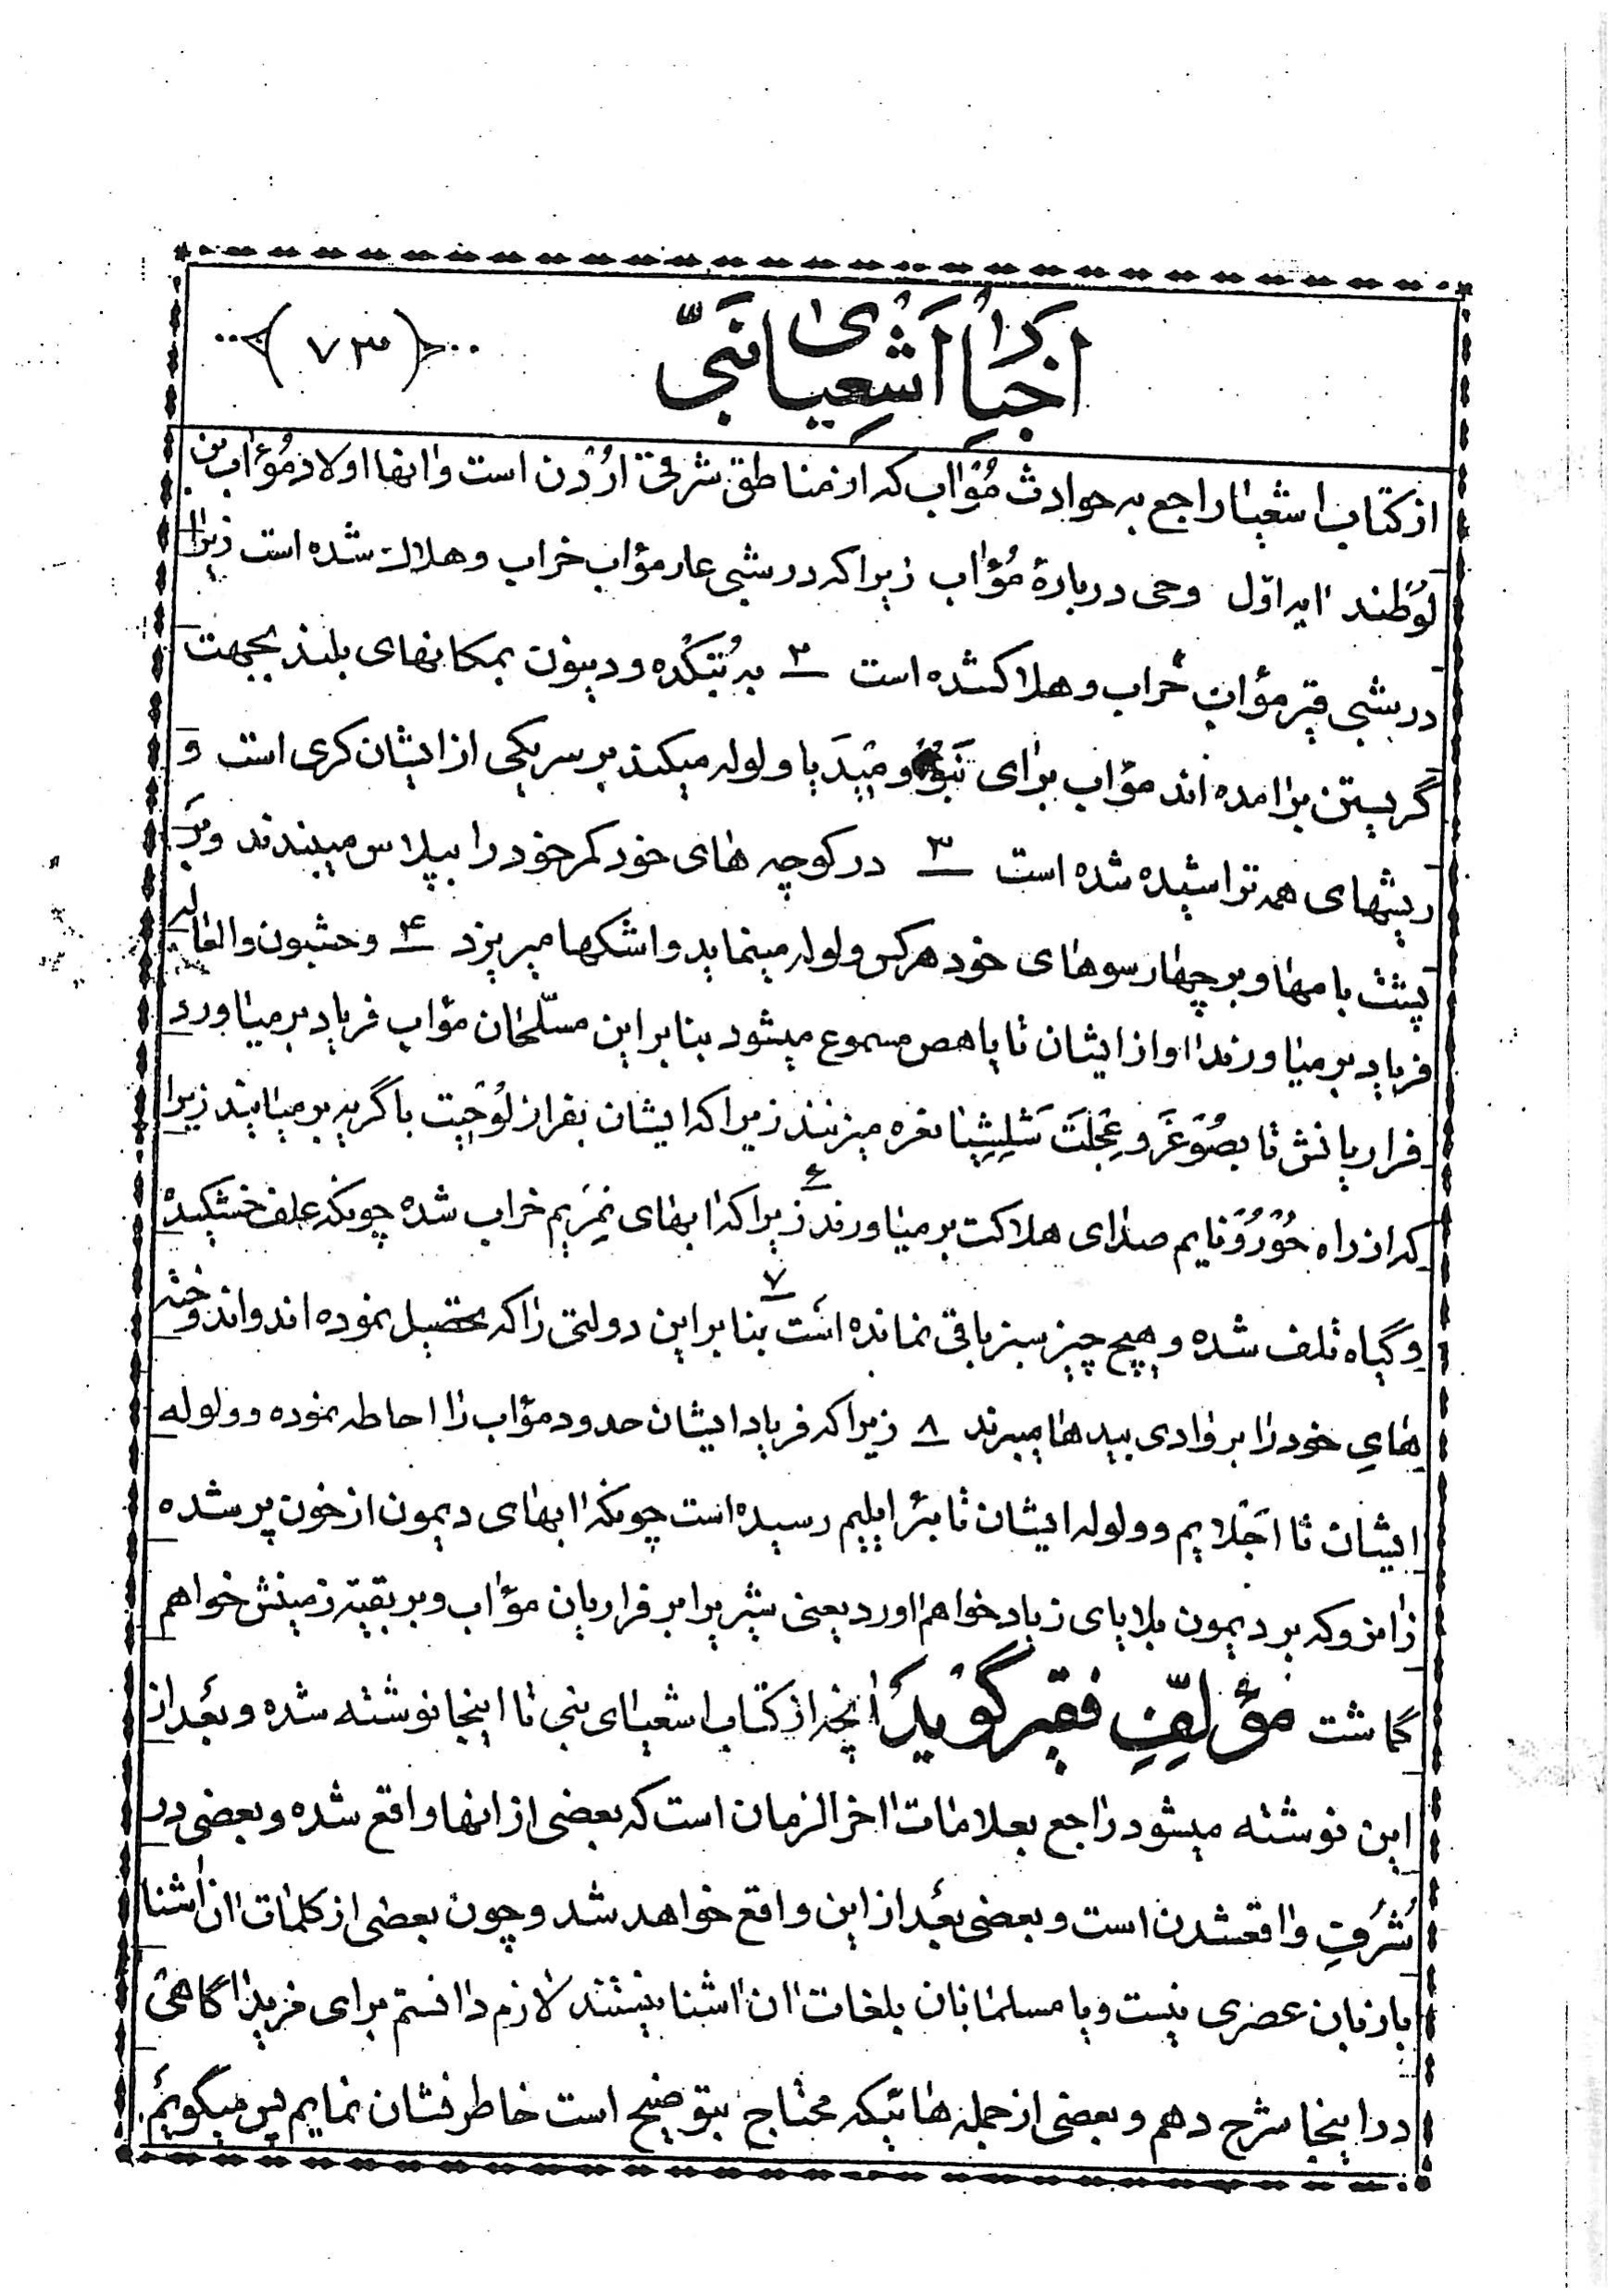 اخبار اشعیای نبی
(۷۳)
از کتاب اشعیا راجع به حوادث مُؤاب که از مناطق شرقی اُردُن است و آنها اولاد مُؤاب بن
لوُطند آیه اوّل وحی دربارهٔ مُؤاب زیرا که در شبی عار مؤاب خراب و هلاک شده است زیرا
در شبی قیر مؤاب خراب و هلاکشده است ۲ به بُتکَده و دیبون بمکانهای بلند بجهت
گریستن برآمده‌اند مؤاب برای نَبوُ و مَیدَبا ولوله میکند بر سر یکی از ایشان کری است و
ریشهای همه تراشیده شده است ۳ در کوچه های خود کمر خود را بپلاس میبندند و بَر
پشت بامها و بر چهارسوهای خود هر کس ولوله مینماید و اشکها میریزد ۴ و حشبون و العاله
فریاد برمیاورند آواز ایشان تا یاهص مسموع میشود بنابراین مسلّحان مؤاب فریاد برمیاورد
فراریانش تا بصُوغَر و عِجلَتَ شَلِشِیا نعره میزنند زیرا که ایشان بفراز لوُحیت با گریه برمیایند زیرا
که از راه حُوُروُنایم صدای هلاکت برمیاورند ۶ زیرا که آبهای نِمریم خراب شده چونکه علف خشکیده
و گیاه تلف شده و هیچ چیز سبز باقی نمانده است ۷ بنابراین دولتی را که تحصیل نموده‌اند و اندوخته
های خود را بر وادی بیدها میبرند ۸ زیرا که فریاد ایشان حدود مؤاب را احاطه نموده و ولوله
ایشان تا اَجَلایم و ولوله ایشان تا بئرایلیم رسیده است چونکه آبهای دیمون از خون پر شده
زانرو که بر دیمون بلایای زیاد خواهم آورد یعنی شیریرا بر فراریان مؤاب و بر بقیّه زمینش خواهم
گماشت مؤلّفِ فقیر گوید آنچه از کتاب اشعیای نبی تا اینجا نوشته شده و بعد از
این نوشته میشود راجع بعلامات آخر الزمان است که بعضی از آنها واقع شده و بعضی در
شُرُفِ واقعشدن است و بعضی بعد از این واقع خواهد شد و چون بعضی از کلمات آن آشنا
با زبان عصری نیست و یا مسلمانان بلغات آن آشنا نیستند لازم دانستم برای مزید آگاهی
در اینجا شرح دهم و بعضی از جمله هائیکه محتاج بتوضیح است خاطر نشان نمایم پس میگویم